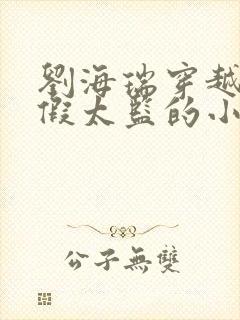 劉海瑞穿越
假太監的小
公子無雙